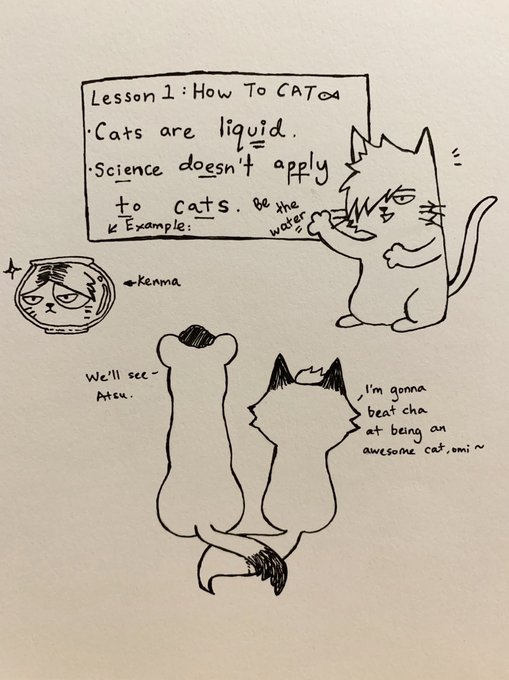 Lesson 1: How To CAT
· Cats are liquid.
· Science doesn't apply
to cats.
Be the
water
↙ Example:
←Kenma
We'll see~
Atsu.
I'm gonna
beat cha
at being an
awesome cat, omi~